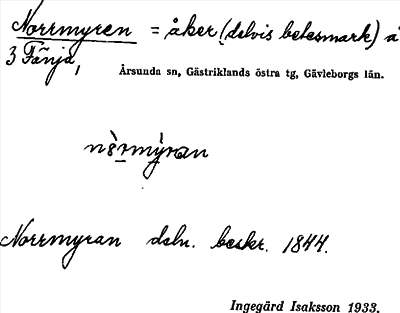 Norrmyren = åker (delvis betesmark) å
3 Fänja,
Årsunda sn, Gästriklands östra tg, Gävleborgs län.
Norrmyran deln. beskr. 1844.
Ingegärd Isaksson 1933.